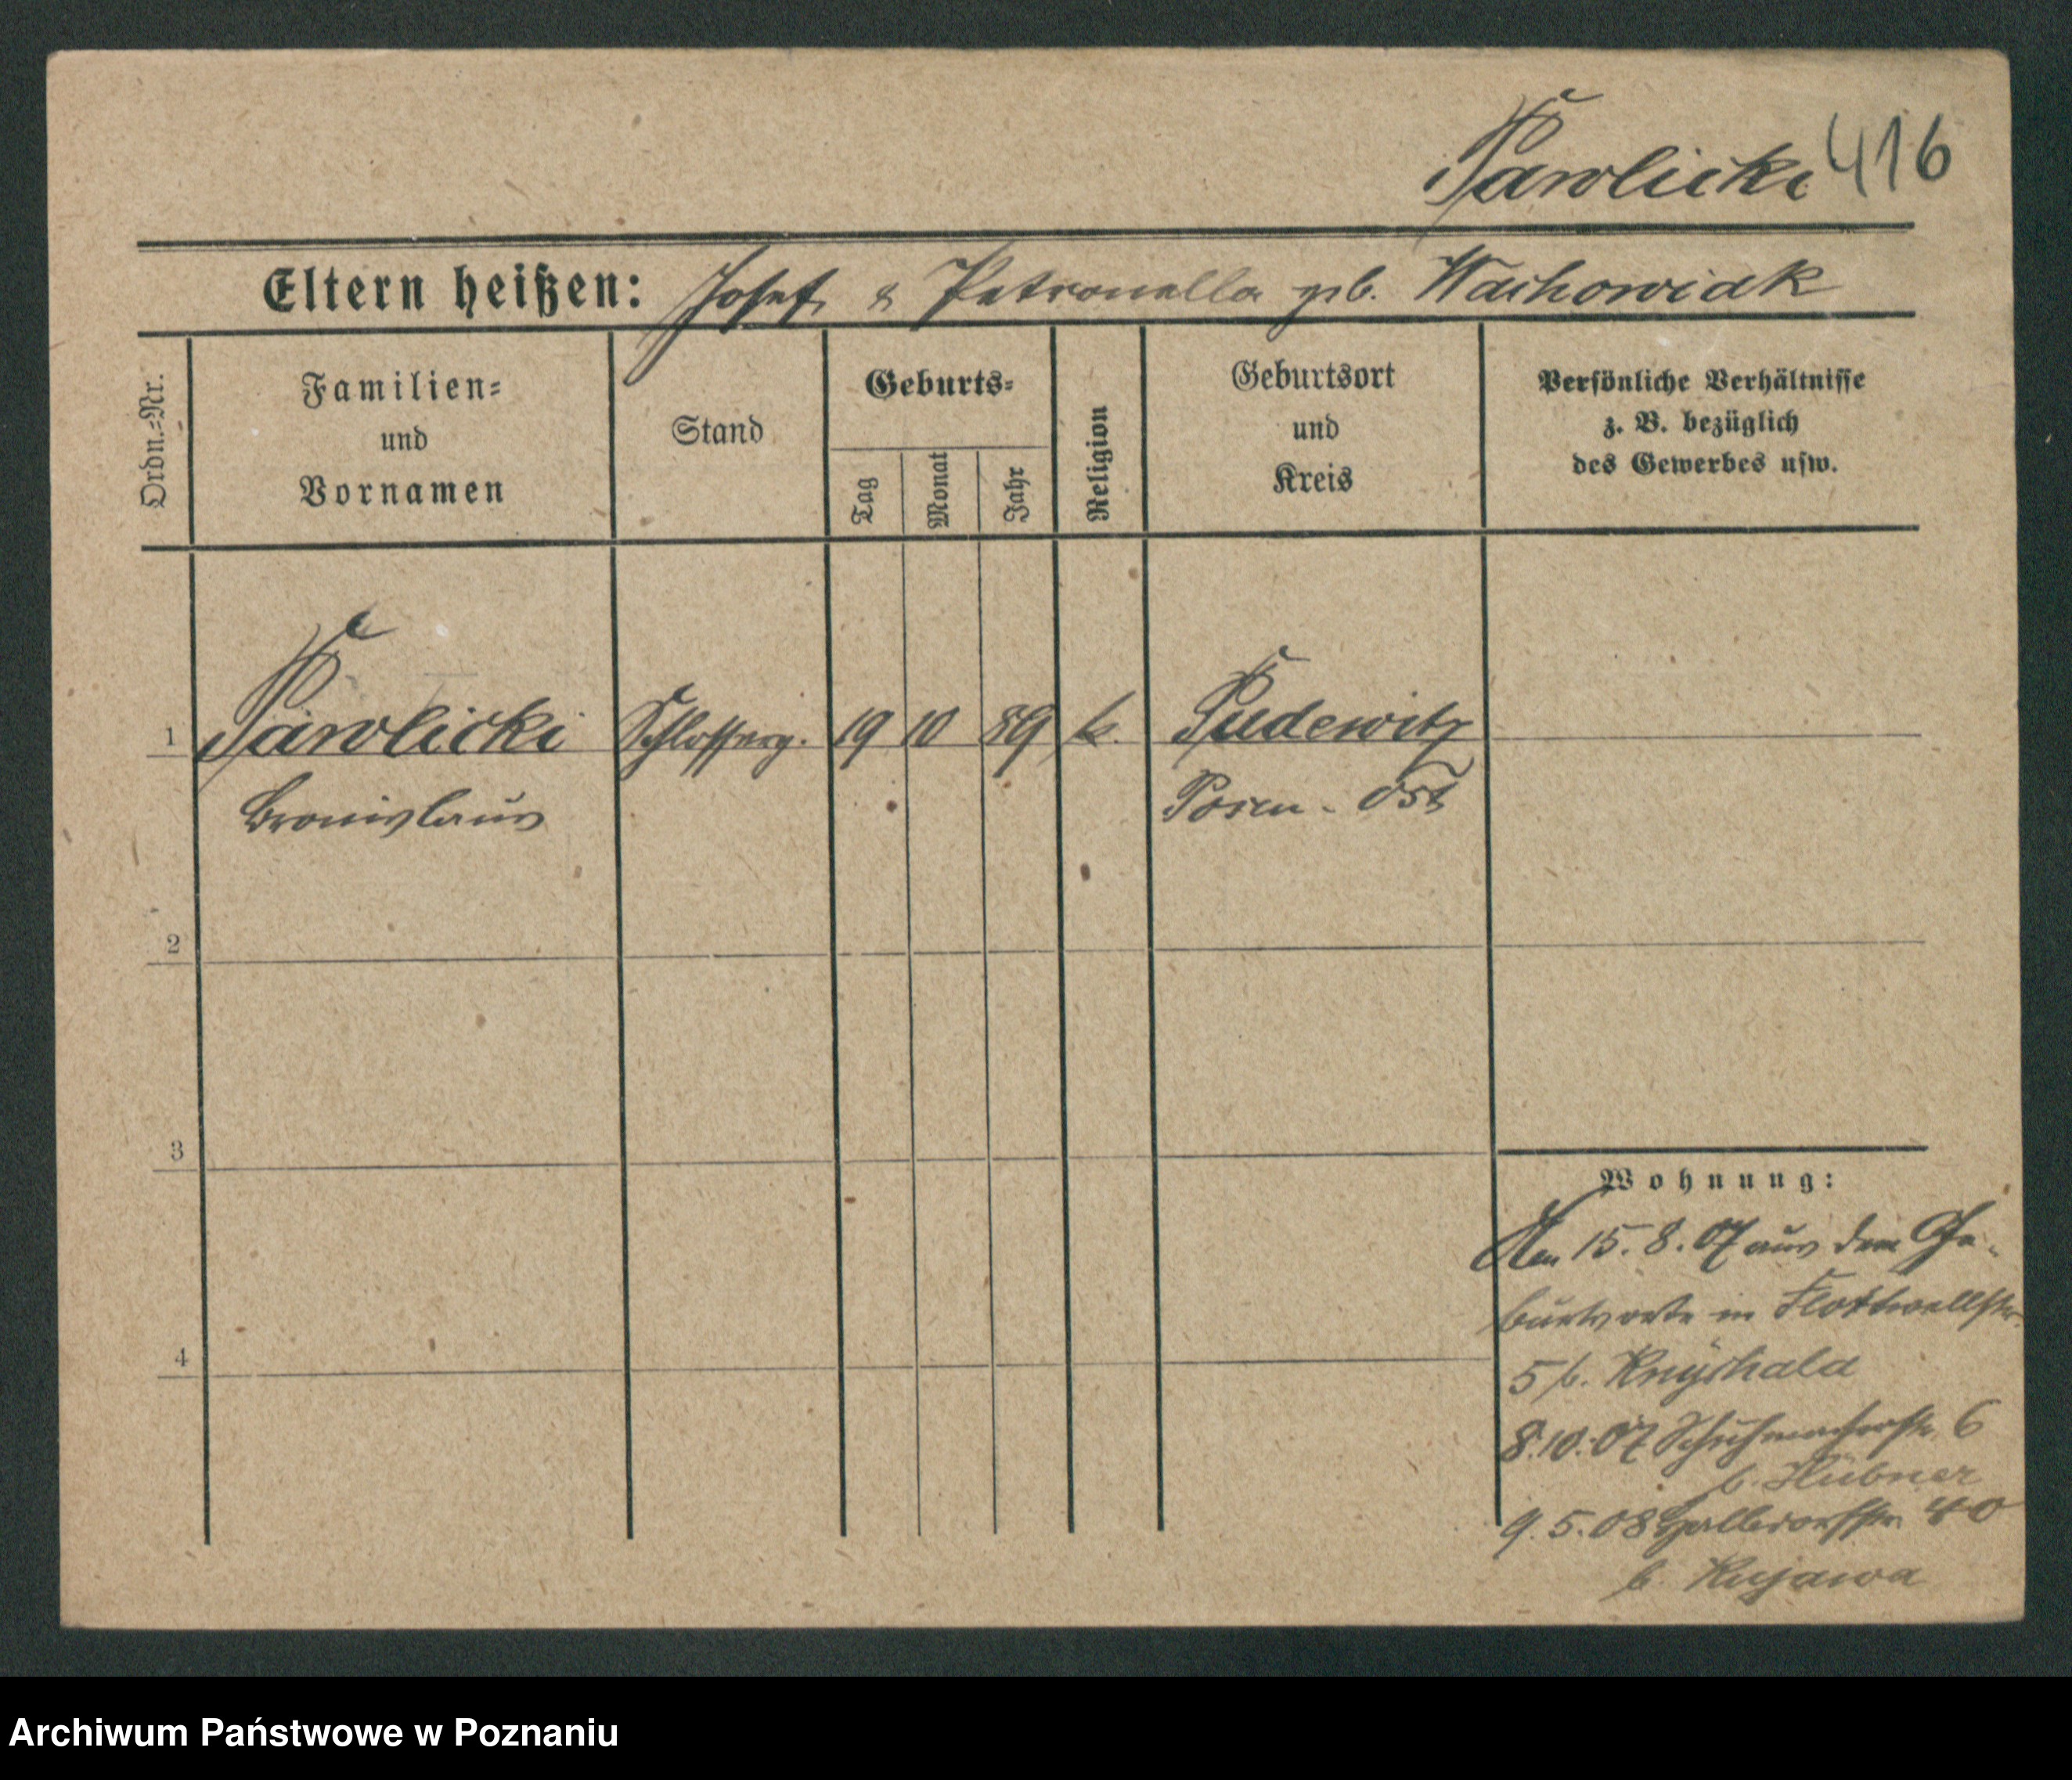 Pawlicki 416
Eltern heißen: Josef & Petronella geb. Wachowiak
Ordn.=Nr.
Familien=
und
Vornamen
Stand
Geburts=
Tag
Monat
Jahr
Religion
Geburtsort
und
Kreis
Persönliche Verhältnisse
z. B. bezüglich
des Gewerbes usw.
1 Pawlicki Schlosserg. 19 10 89 k. Pudewitz
Bronislaus Posen - Ost
2
3
Wohnung:
Am 15.8.07 aus dem Ge-
burtsorte in Flottwellstr.
4
5 b.
8.10.07 Schuhmacherstr. 6
b. Hübner
9.5.08 Halbdorfstr. 40
b. Kujawa
Archiwum Państwowe w Poznaniu